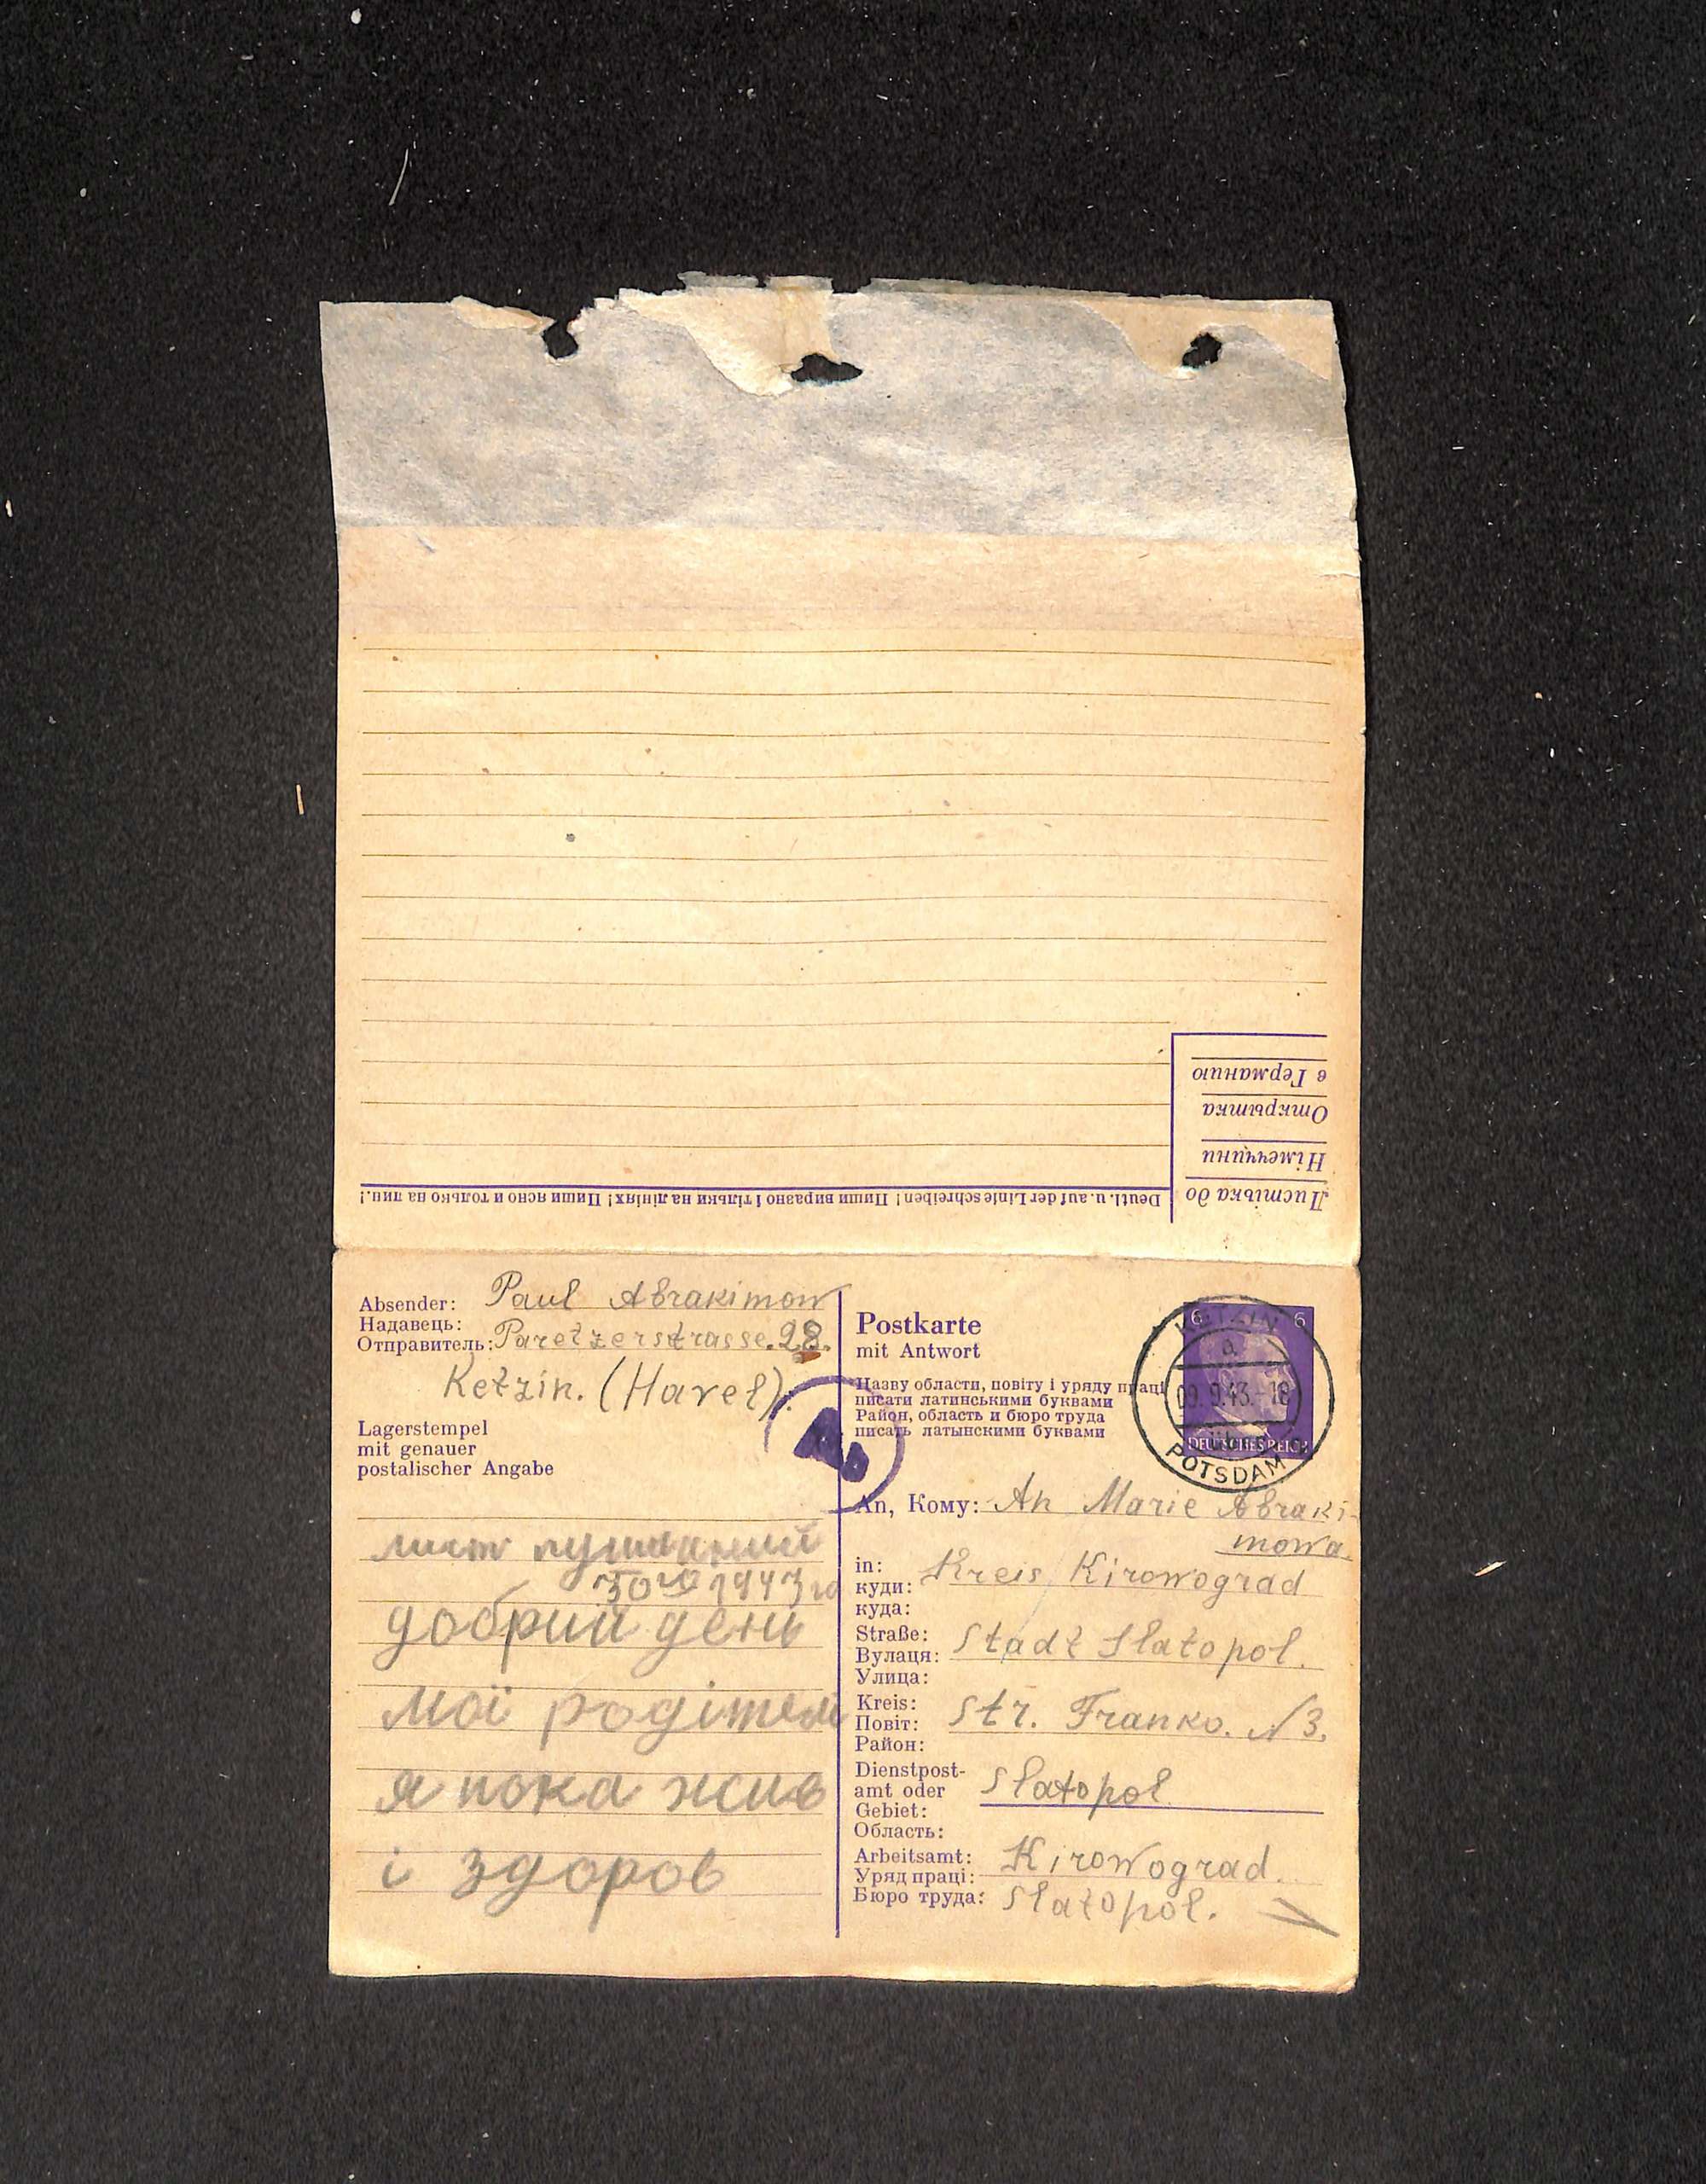 Листівка до
Німеччини
Открытка
в Германию
Deutl. u. auf der Linie schreiben! Пиши виразно і тільки на лініях! Пиши ясно и только на лин.!
Absender: Paul Abrakimow
Надавець:
Отправитель: Paretzerstrasse. 28.
Ketzin. (Havel).
Lagerstempel
mit genauer
postalischer Angabe
Ab
лист
30го 1943 го
добрий день
мої родітелі
я пока жив
і здоров
Postkarte
mit Antwort
Назву области, повіту і уряду праці
писати латинськими буквами
Район, область и бюро труда
писать латынскими буквами
6 6
DEUTSCHES REICH
KETZIN
a
09.9.43.-18
über
POTSDAM
An, Кому: An Marie Abraki-
mowa.
in: Kreis Kirowograd
куди:
куда:
Straße: Stadt Slatopol.
Вулаця:
Улица:
Kreis: Str. Franko. N 3.
Повіт:
Район:
Dienstpost-
amt oder Slatopol
Gebiet:
Область:
Arbeitsamt: Kirowograd.
Уряд праці:
Бюро труда: Slatopol.